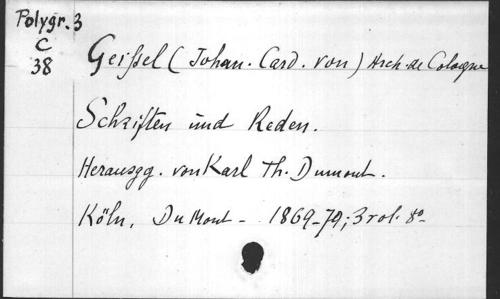 Polygr. 3
C
38
Geißel (Johan. Card. von) Arch. de Cologne
Schriften und Reden.
Herausgg. von Karl Th. Dumont.
Köln, Du Mont - 1869-79; 3 vol. 8º